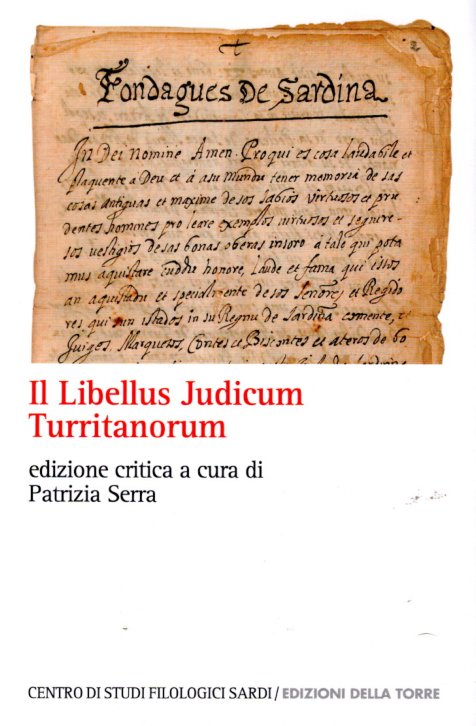 +
2
Fondagues De Sardina
In Dei Nomine Amen. Proqui es cosa laudabile et
plaquente a Deu et á asu mundu tener memoria de sas
cosas antiguas et maxime de sos sabios virtuosos et pru
dentes hommes pro leare exemplos virtuosos et seguire-
sos vestigios de sas bonas oberas insoro á tale qui pota
mus aquistare honore, laude et fama qui issos
an aquistadu et specialmente de sos Señores et Regido
res qui sun istados in su Regnu de Sardiña comente, et
Juiges, Marquesos, Contes et Biscontes et ateros de bo
Il Libellus Judicum
Turritanorum
edizione critica a cura di
Patrizia Serra
CENTRO DI STUDI FILOLOGICI SARDI / EDIZIONI DELLA TORRE